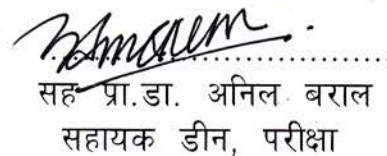 सह प्रा.डा. अनिल बराल
सहायक डीन, परीक्षा